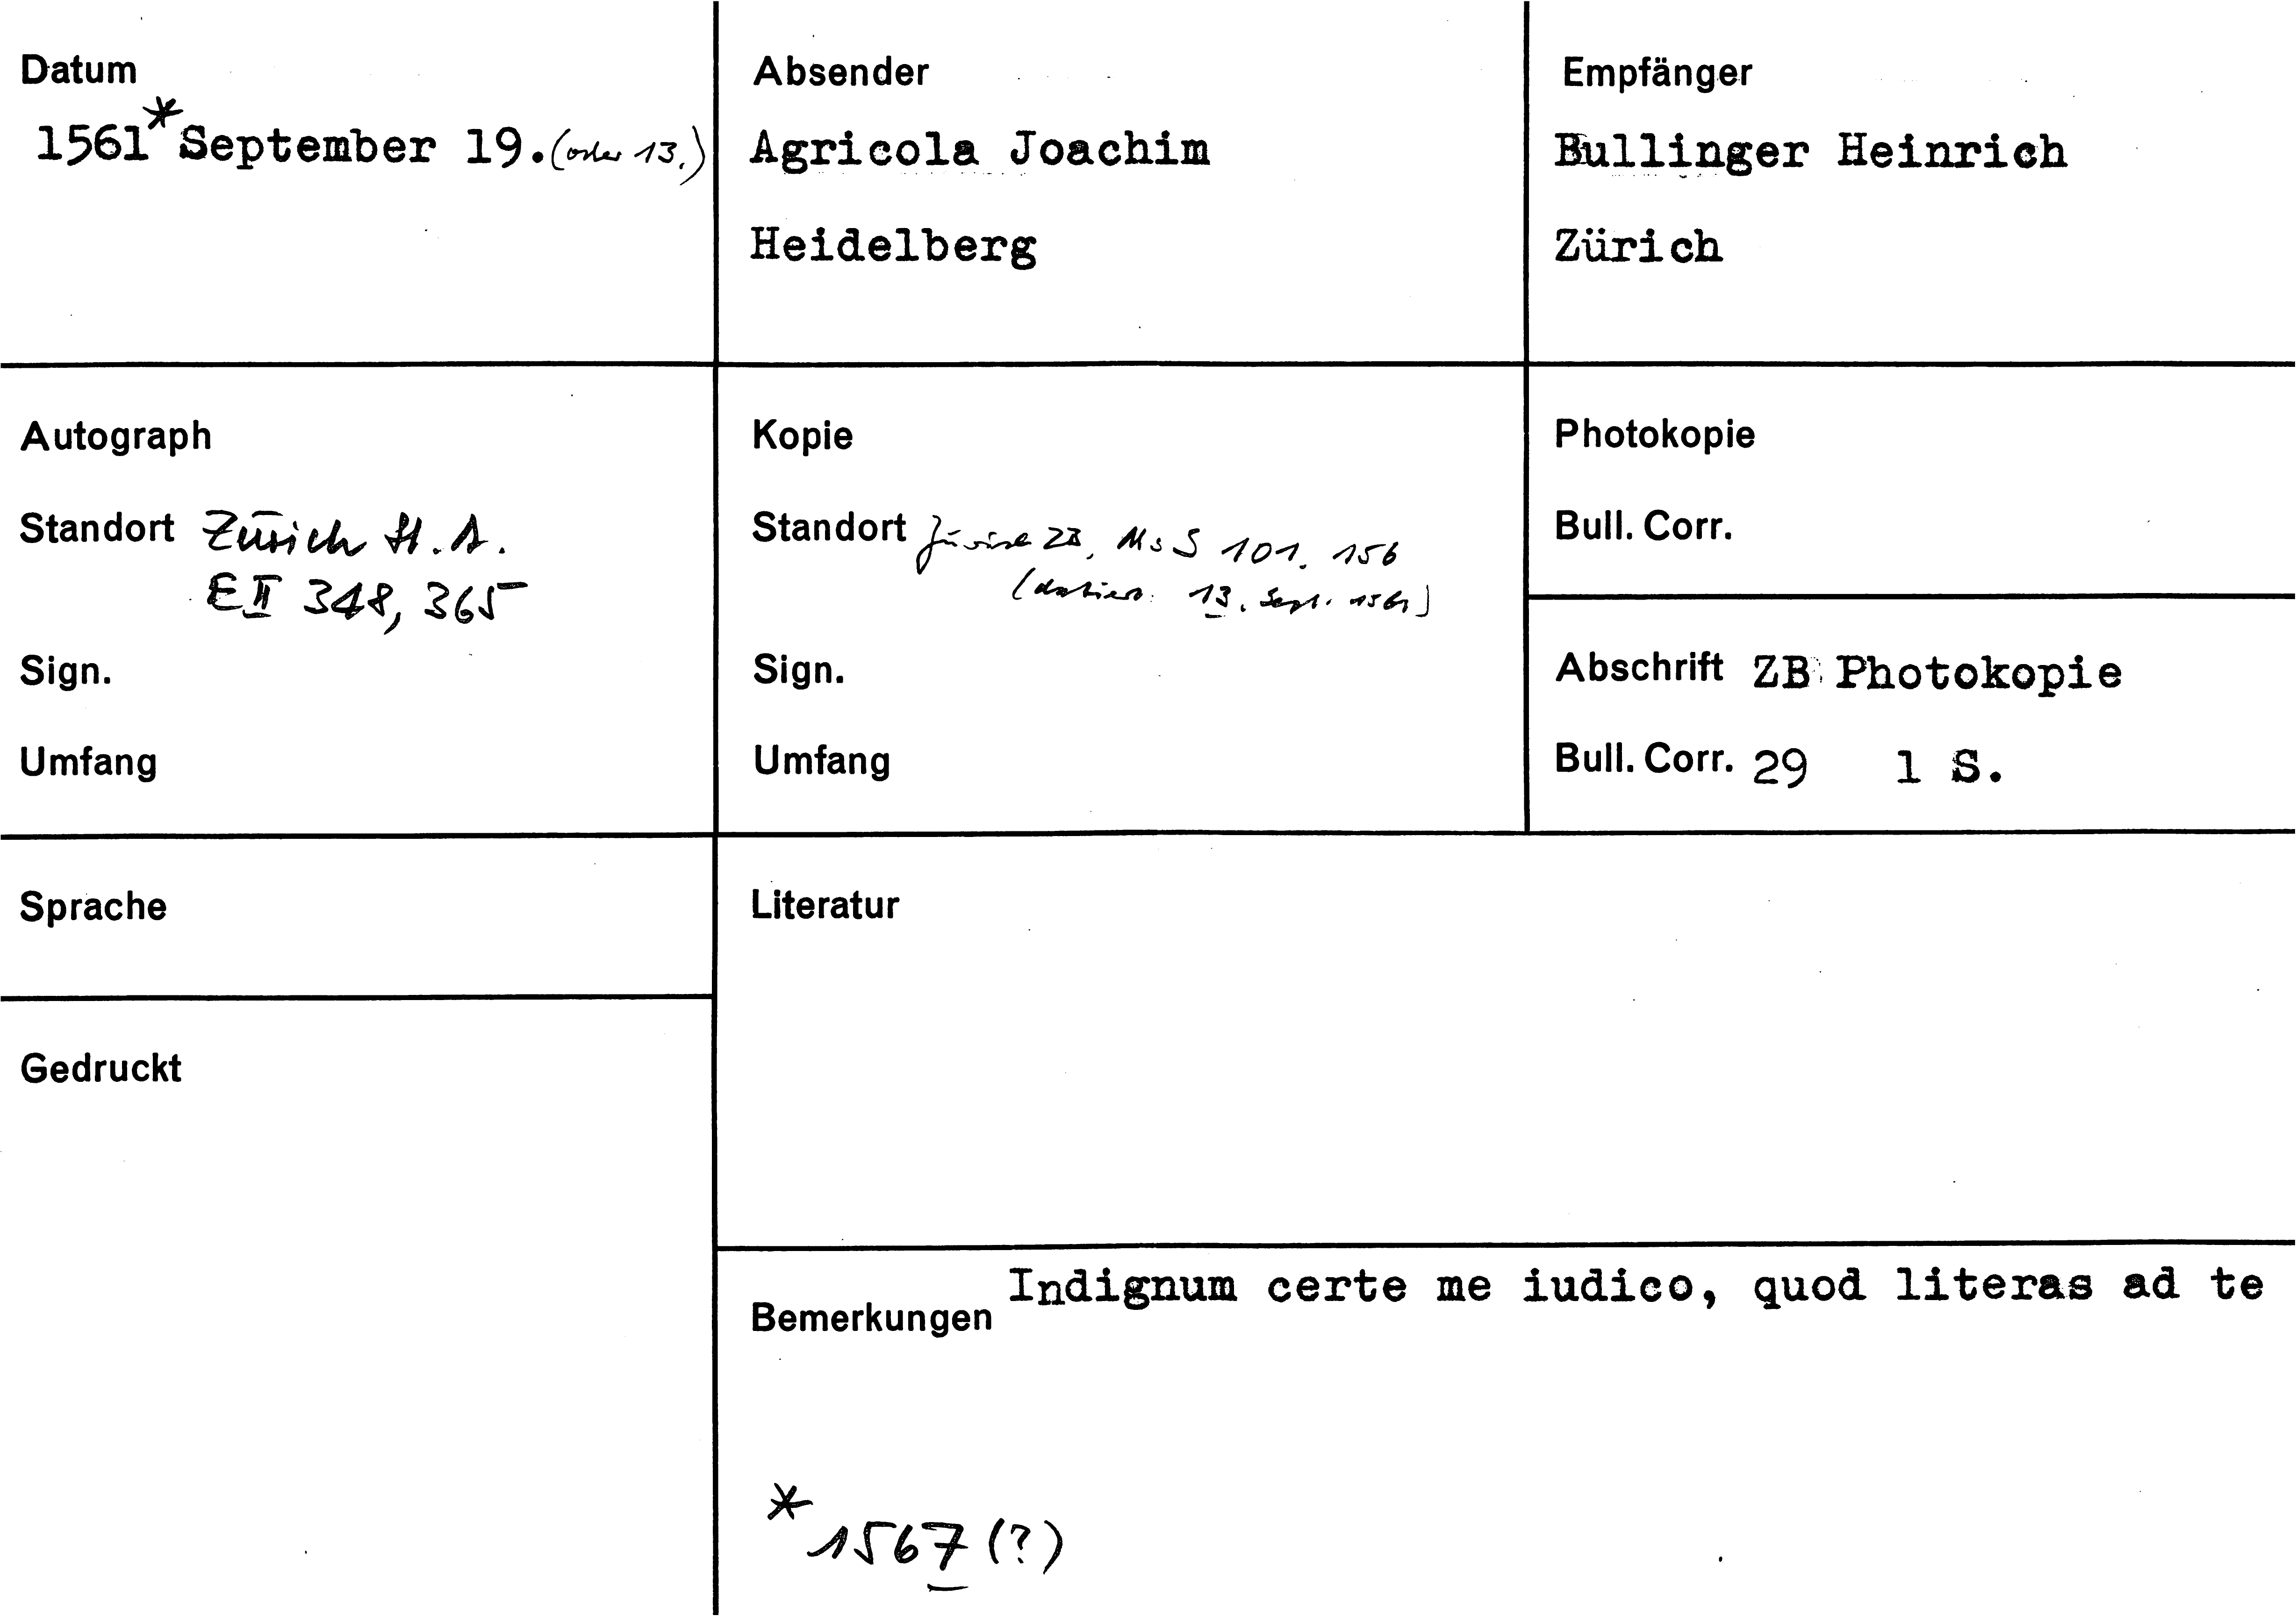 Datum
1561* September 19. (oder 13.)
Absender
Agricola Joachim
Heidelberg
Empfänger
Bullinger Heinrich
Zürich
Autograph
Standort Zürich St. A.
E II 348, 365
Sign.
Umfang
Kopie
Standort Zürich ZB, Ms S 101. 156
(datiert: 13. Sept. 1561)
Sign.
Umfang
Photokopie
Bull. Corr.
Abschrift ZB Photokopie
Bull. Corr. 29 1 S.
Sprache
Literatur
Gedruckt
Bemerkungen Indignum certe me iudico, quod literas ad te
* 1567 (?)